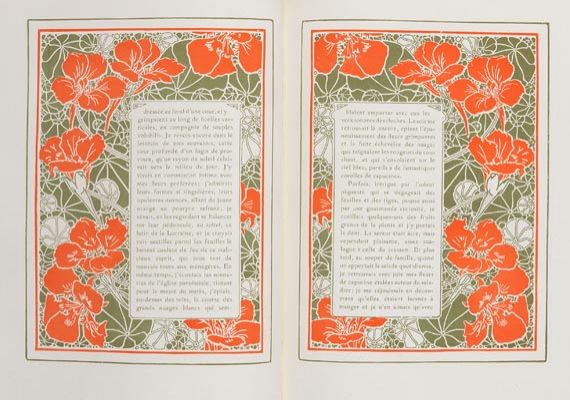 dressée au fond d'une cour, et y
grimpaient au long de ficelles ver-
ticales, en compagnie de souples
volubilis. Je revois encore dans le
lointain de mes souvenirs, cette
cour profonde d'un logis de pro-
vince, qu'un rayon de soleil éclai-
rait vers le milieu du jour. J'y
vivais en communion intime avec
mes fleurs préférées; j'admirais
leurs formes si singulières, leurs
opulentes nuances, allant du jaune
orange au pourpre safrané; je
savais, en les regardant se balancer
sur leur pédoncule, au
latin de la Lorraine, et je croyais
voir sautiller parmi les feuilles le
bonnet couleur de feu de ce ma-
licieux esprit, qui joue tant de
mauvais tours aux ménagères. En
même temps, j'écoutais les sonne-
ries de l'église paroissiale, tintant
pour la messe du matin, j'épiais,
au-dessus des toits, la course des
grands nuages blancs qui sem-
blaient emporter avec eux les
versions des cloches. La nuit
retrouvant la encore, épiant l'épa-
nouissement des fleurs grimpantes
et la fuite échevelée des nuages
que teignaient les rougeurs du cou-
chant, et qui s'envolaient sur le
ciel bleu, pareils à de fantastiques
corolles de capucines.
Parfois, intrigué par l'odeur
piquante qui se dégageait des
feuilles et des tiges, poussé aussi
par une gourmande curiosité, je
cueillais quelques-uns des fruits
grenus de la plante et j'y portais
la dent. La saveur était âcre, mais
cependant plaisante, assez ana-
logue à celle du cresson. Et plus
tard, au souper de famille, quand
on apportait la salade quotidienne,
je retrouvais avec joie mes fleurs
de capucine étalées autour du sala-
dier; je me réjouissais en décou-
vrant qu'elles étaient bonnes à
manger et je n'en aimais qu'avec